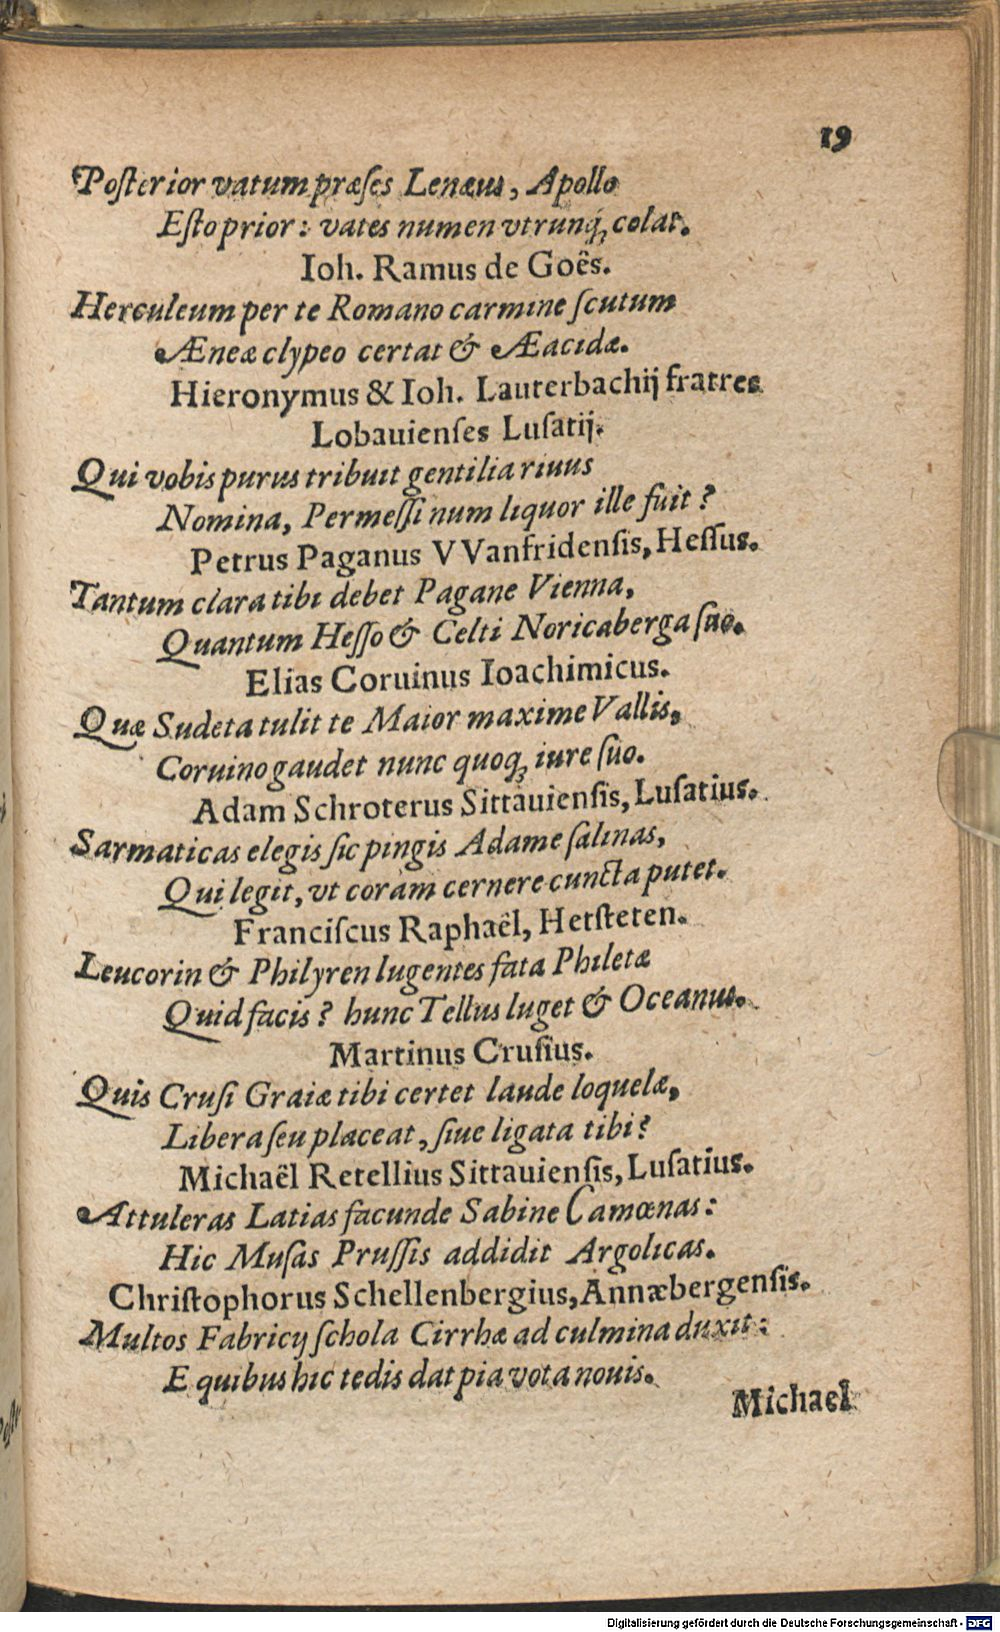 19
Posterior vatum præſes Lenæus, Apollo
Eſto prior: vates numen vtrunq́; colat.
Ioh. Ramus de Goês.
Herculeum per te Romano carmine ſcutum
Æneæ clypeo certat & Æacidæ.
Hieronymus & Ioh. Lauterbachij fratres
Lobauienſes Luſatij.
Qui vobis purus tribuit gentilia riuus
Nomina, Permeſſi num liquor ille fuit?
Petrus Paganus VVanfridenſis, Heſſus.
Tantum clara tibi debet Pagane Vienna,
Quantum Heſſo & Celti Noricaberga ſuo.
Elias Coruinus Ioachimicus.
Quæ Sudeta tulit te Maior maxime Vallis,
Coruino gaudet nunc quoq; iure ſuo.
Adam Schroterus Sittauienſis, Luſatius.
Sarmaticas elegis ſic pingis Adame ſalinas,
Qui legit, vt coràm cernere cuncta putet.
Franciſcus Raphaêl, Hetſteten.
Leucorin & Philyren lugentes fata Philetæ
Quid facis? hunc Tellus luget & Oceanus.
Martinus Cruſius.
Quis Cruſi Graiæ tibi certet laude loquelæ,
Libera ſeu placeat, ſiue ligata tibi?
Michaêl Retellius Sittauienſis, Luſatius.
Attuleras Latias facunde Sabine Camœnas:
Hic Muſas Pruſſis addidit Argolicas.
Chriſtophorus Schellenbergius, Annæbergenſis.
Multos Fabricij ſchola Cirrhæ ad culmina duxit:
E quibus hic tedis dat pia vota nouis.
Michael
Digitalisierung gefördert durch die Deutsche Forschungsgemeinschaft - DFG